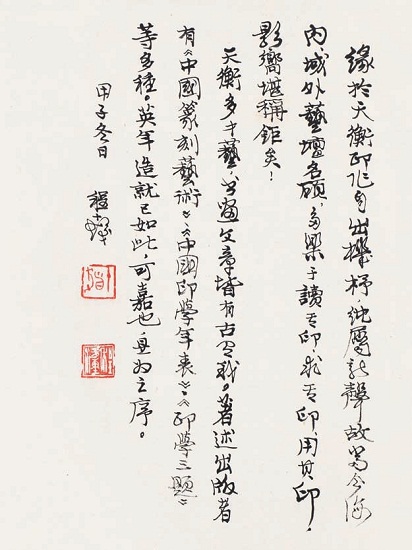 緣於天衡印作自出機杼，純屬新聲，故當今海
內域外藝壇名碩，多樂于讀其印，求其印，用其印，
影嚮堪稱鉅矣！
天衡多才藝，書畫文章皆有古今我。著述出版者
有《中國篆刻藝術》、《中國印學年表》、《印學三題》
等多種。英年造就已如此，可嘉也，是为之序。
甲子冬日 程十髮